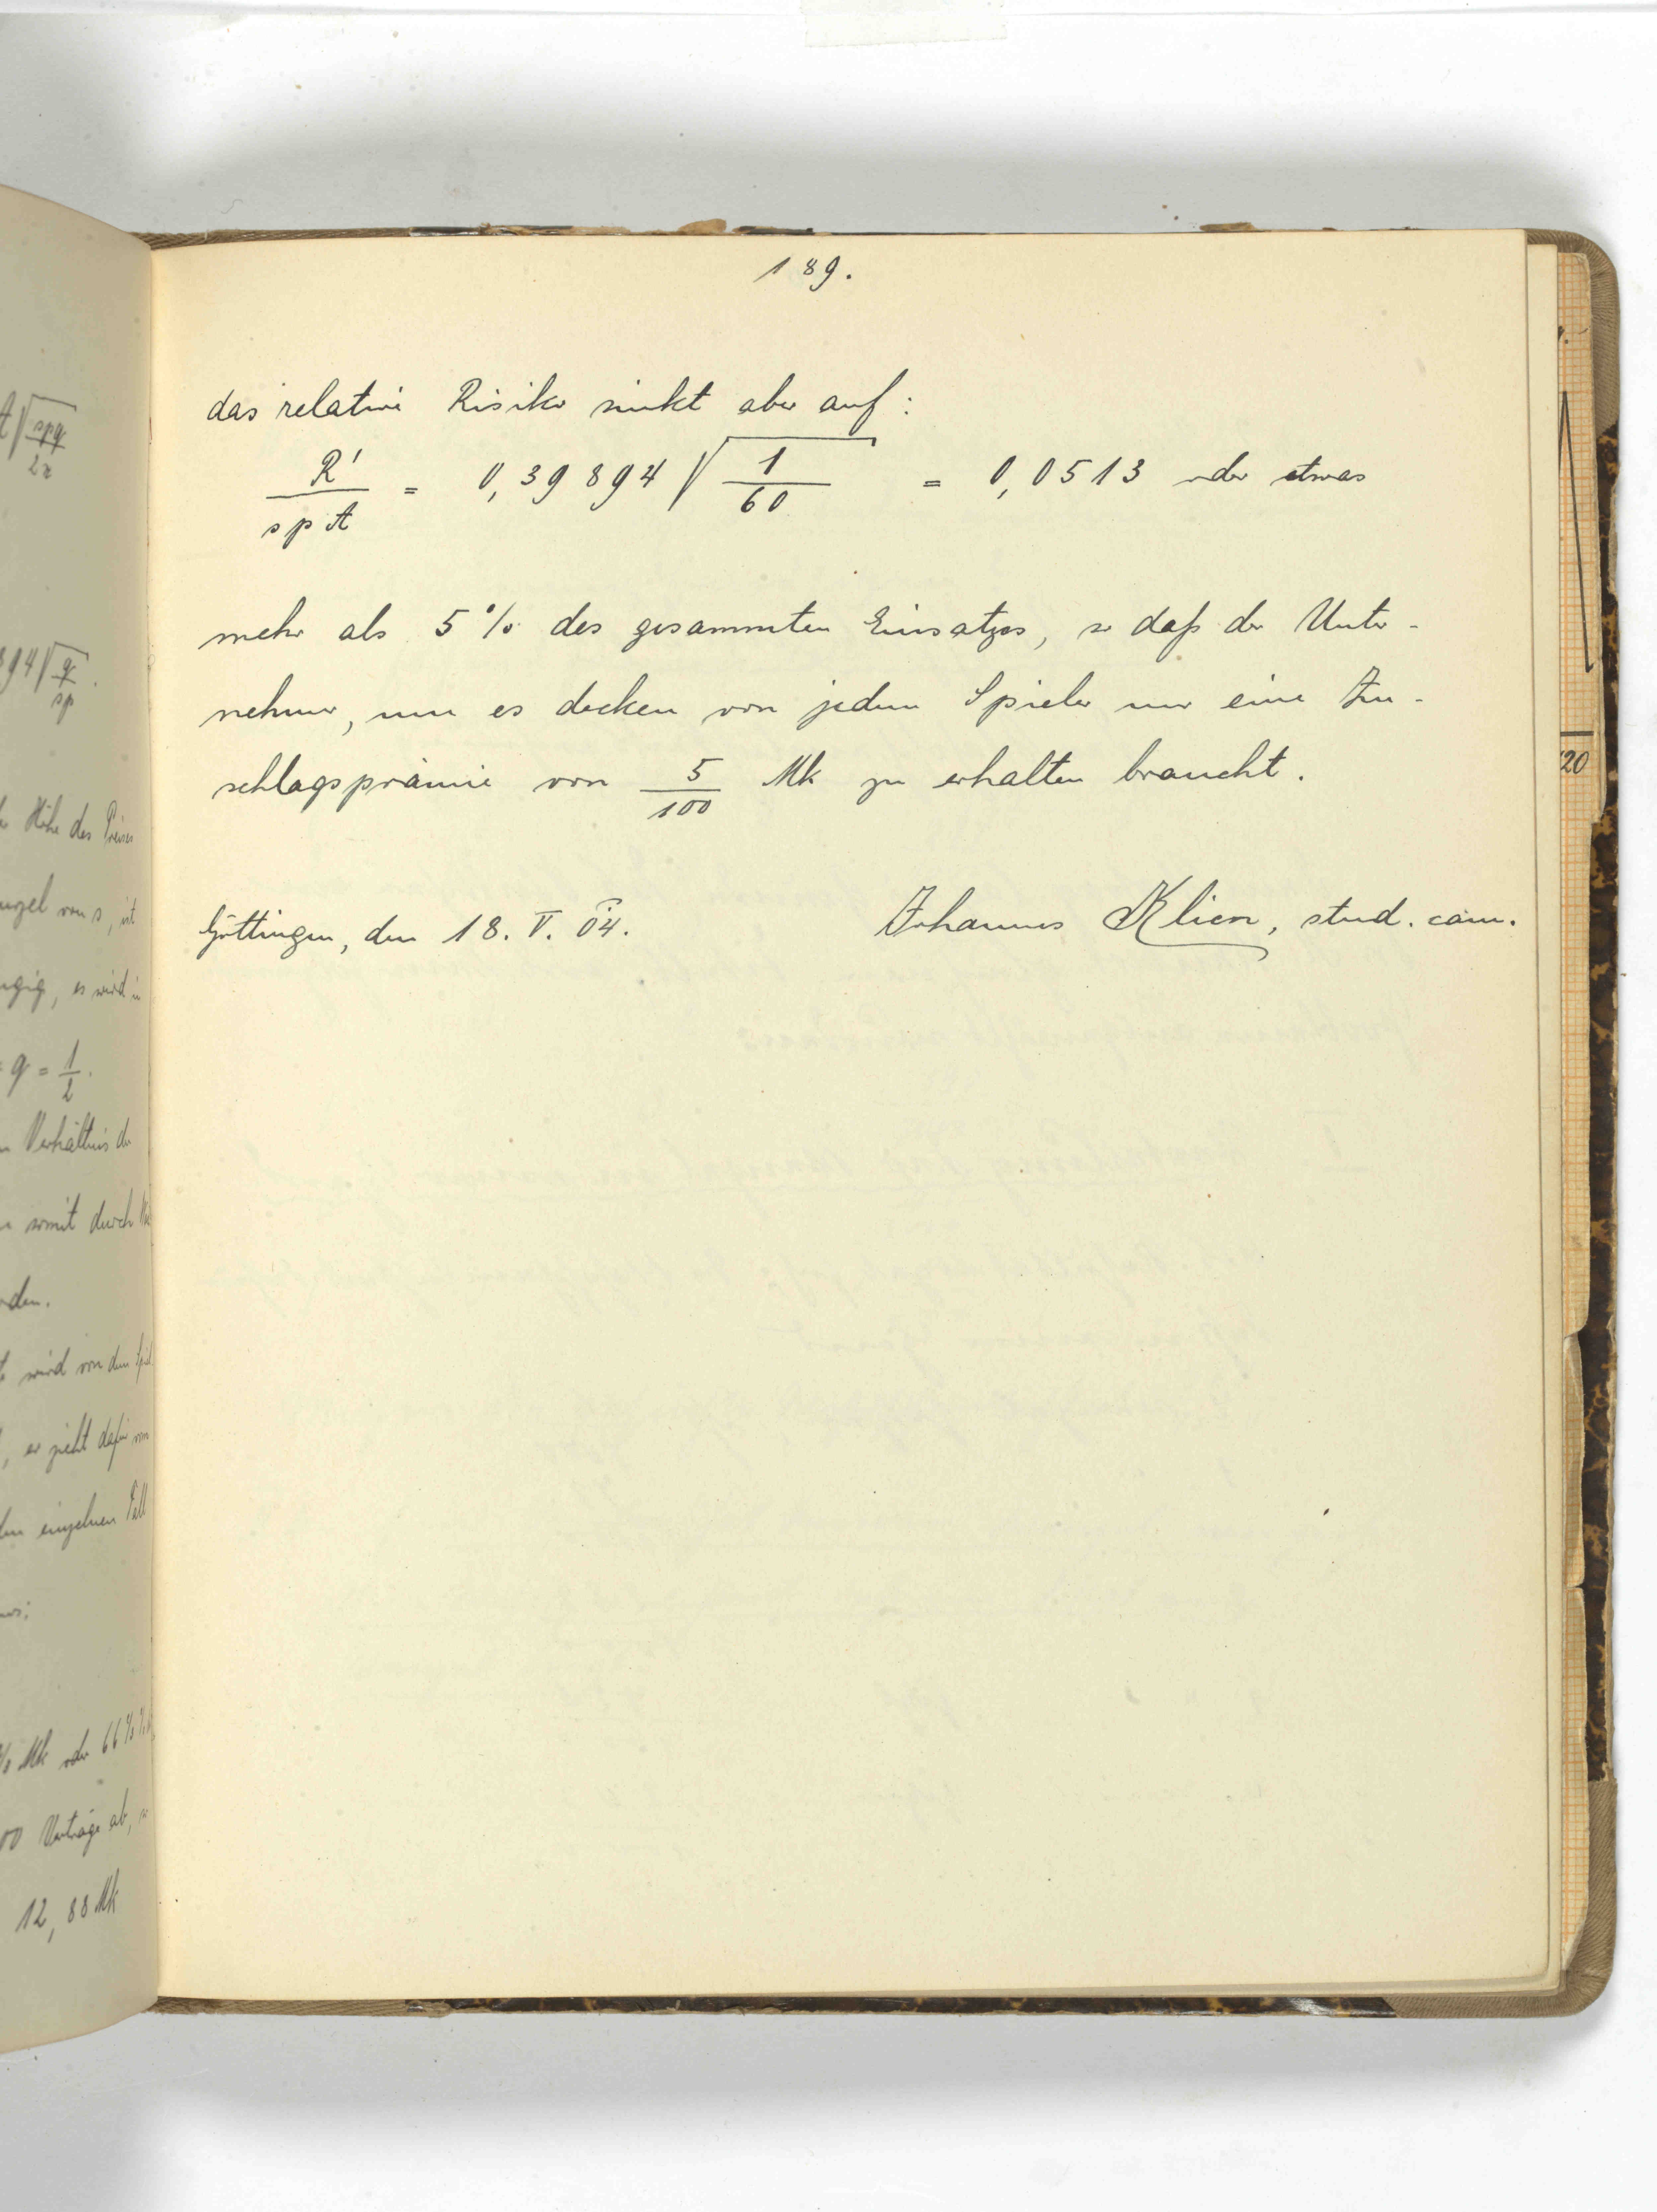 189.
das relative Risiko sinkt aber auf:
R'/spA = 0,39894 √(1/60) = 0,0513 oder etwas
mehr als 5% des gesammten Einsatzes, so daß der Unter-
nehmer, um es decken von jedem Spieler nur eine Zu-
schlagsprämie von 5/100 Mk zu erhalten braucht.
Göttingen, den 18. V. 04. Johannes Klien, stud. cam.
A√(spq/2π)
894√(q/sp).
Höhe des Preises
von s, ist
es wird in
q = 1/2.
Verhältnis der
somit durch
wird von dem
er zieht dafür von
einzelnen
Mk oder 66
00 Verträge ab, so
12,88 Mk
120